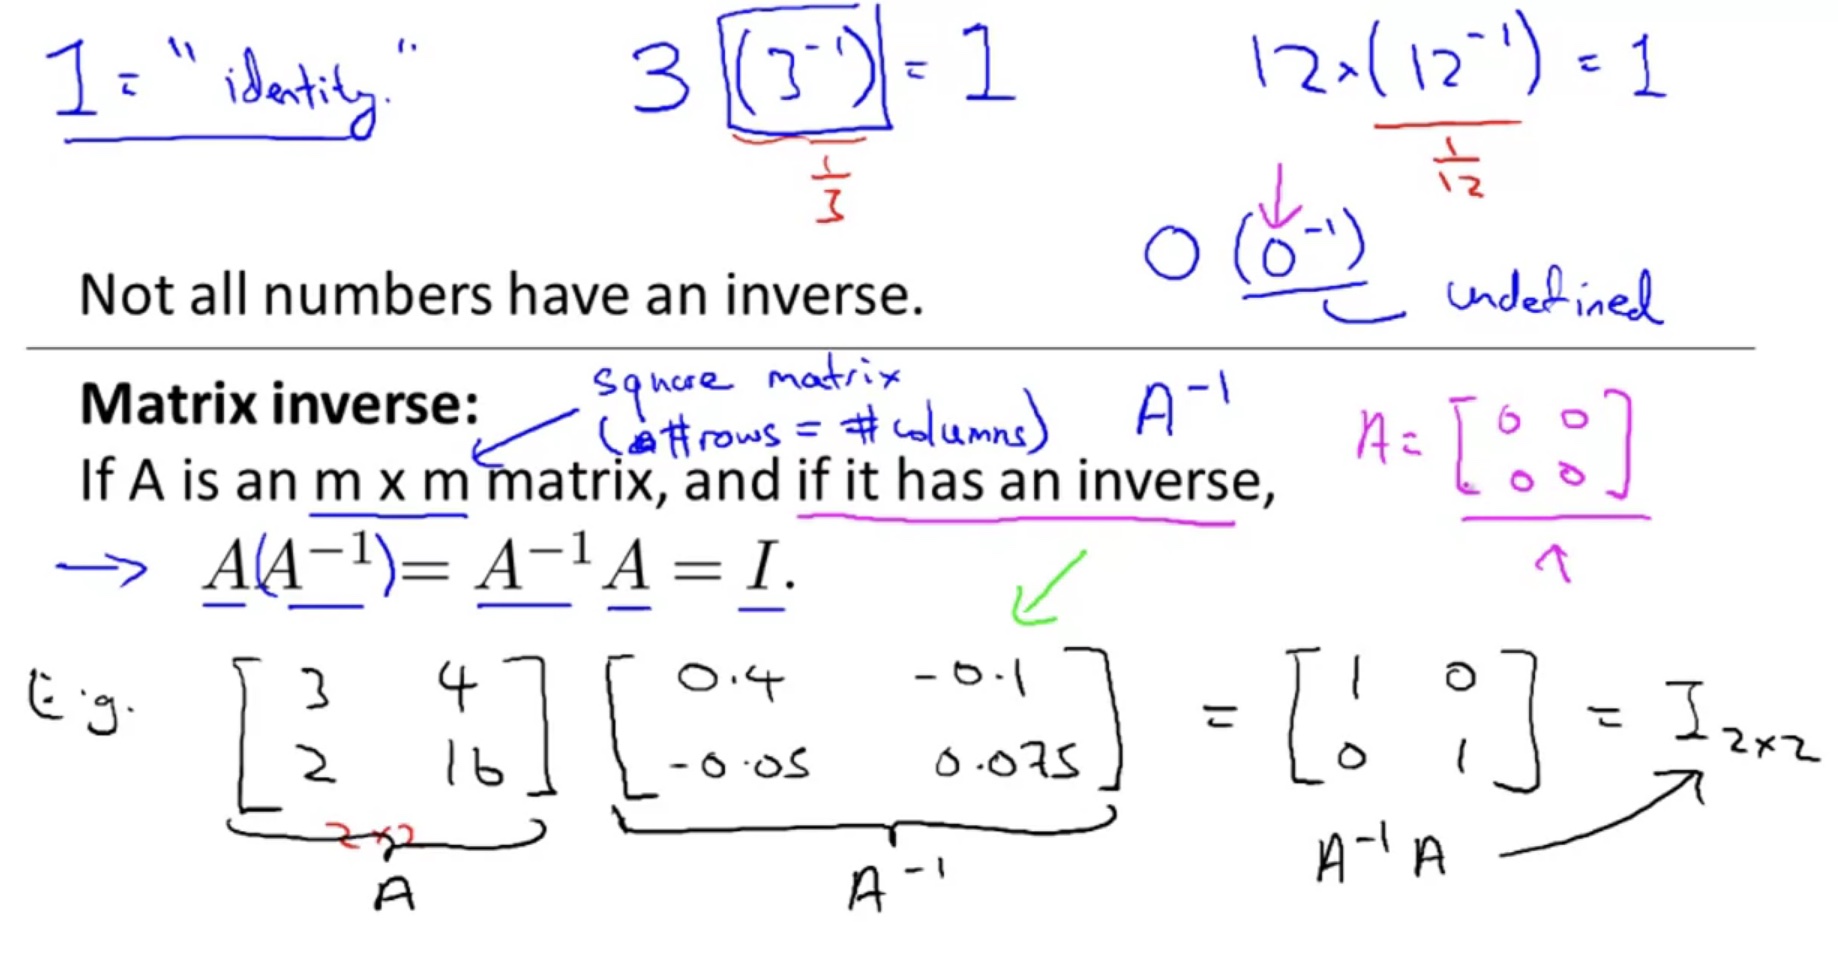 1 = "identity."
3 (3⁻¹) = 1
12 × (12⁻¹) = 1
1/3
1/12
0 (0⁻¹)
undefined
Not all numbers have an inverse.
Matrix inverse:
square matrix
(#rows = #columns)
A⁻¹
A = [0 0; 0 0]
If A is an m x m matrix, and if it has an inverse,
→ A(A⁻¹) = A⁻¹A = I.
E.g. [3 4; 2 16] [0.4 -0.1; -0.05 0.075] = [1 0; 0 1] = I 2×2
2×2
A
A⁻¹
A⁻¹A